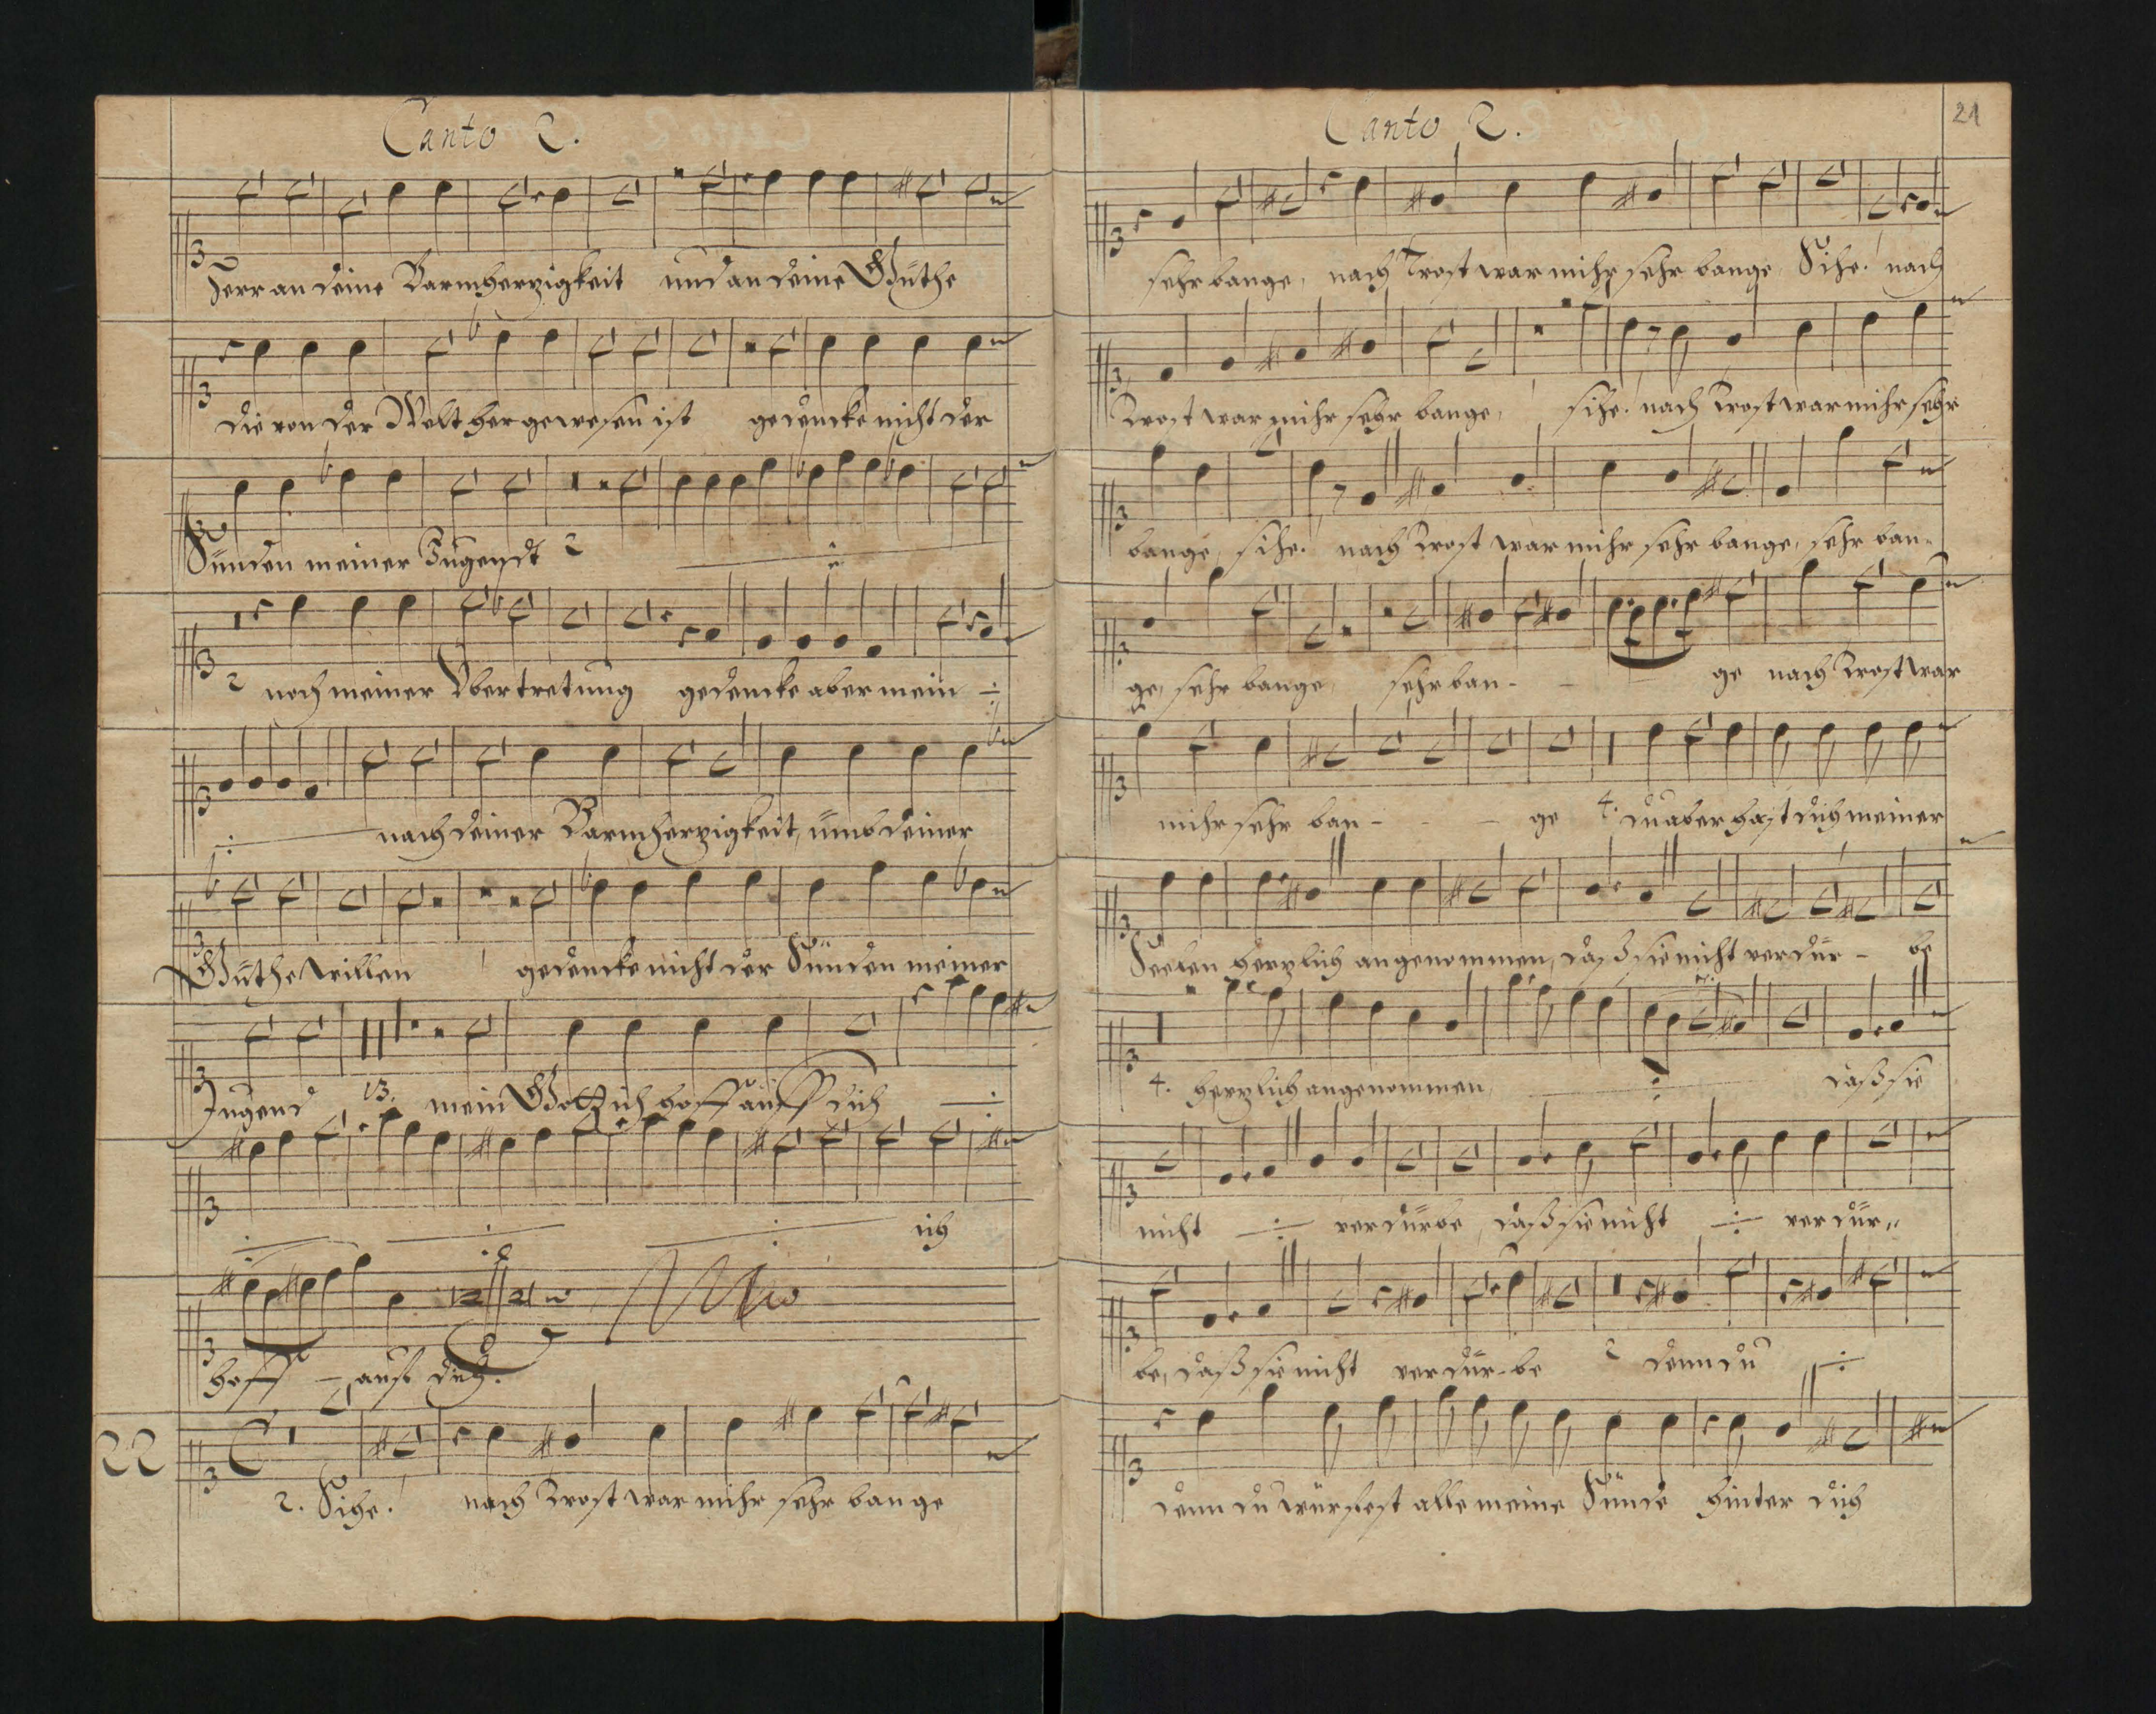 Canto 2.
Herr an deine Barmherzigkeit und an deine Güthe
die von der Welt her gewesen ist gedencke nicht der
Sünden meiner Jugendt 2 ÷
2 noch meiner Vbertretung gedencke aber mein ÷
÷ nach deiner Barmherzigkeit, ümb deiner
Güthe willen gedencke nicht der Sünden meiner
Jugend, 13. mein Gott ich hoff auff dich ÷
÷ ÷ ÷ ich
hoff - auf dich.
22
2. Sihe! nach Trost war mihr sehr bange
Canto 2.
21
sehr bange, nach Trost war mihr sehr bange Sihe! nach
Trost war mihr sehr bange, sihe! nach Trost war mihr sehr
bange, sihe! nach Trost war mihr sehr bange, sehr ban-
ge, sehr bange, sehr ban- - ge nach Trost war
mihr sehr ban- - - ge 4. du aber hast dich meiner
Seelen herzlich angenommen, daß sie nicht verdür- be
4. herzlich angenommen, ÷ daß sie
nicht ÷ verdürbe, daß sie nicht ÷ verdür-
be, daß sie nicht verdür-be 2 denn du ÷
denn du würfest alle meine Sünde hinter dich